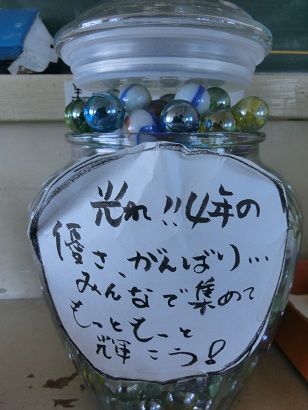 光れ!!4年の
優さ、がんばり…
みんなで集めて
もっともっと
輝こう!